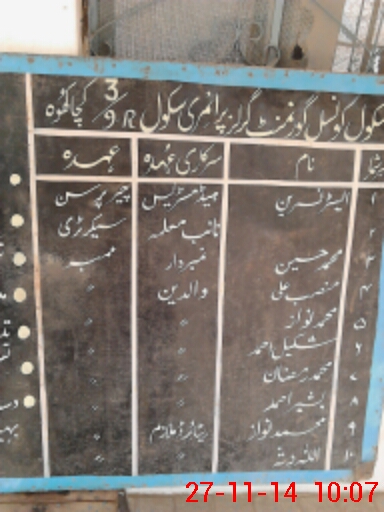 سکول کونسل گورنمنٹ گرلز پرائمری سکول 3/9R کچاکھوہ
نام سرکاری عہدہ عہدہ
۱ نسرین ہیڈمسٹریس چیئرپرسن
۲ نائب معلمہ سیکرٹری
۳ محمد حسین نمبردار ممبر
۴ منصب علی والدین 〃
۵ محمد نواز 〃 〃
۶ شکیل احمد 〃 〃
۷ محمد رمضان 〃 〃
۸ بشیر احمد 〃 〃
۹ محمد نواز ریٹائرڈ ملازم 〃
۱۰ اللہ دتہ 〃 〃
27-11-14 10:07